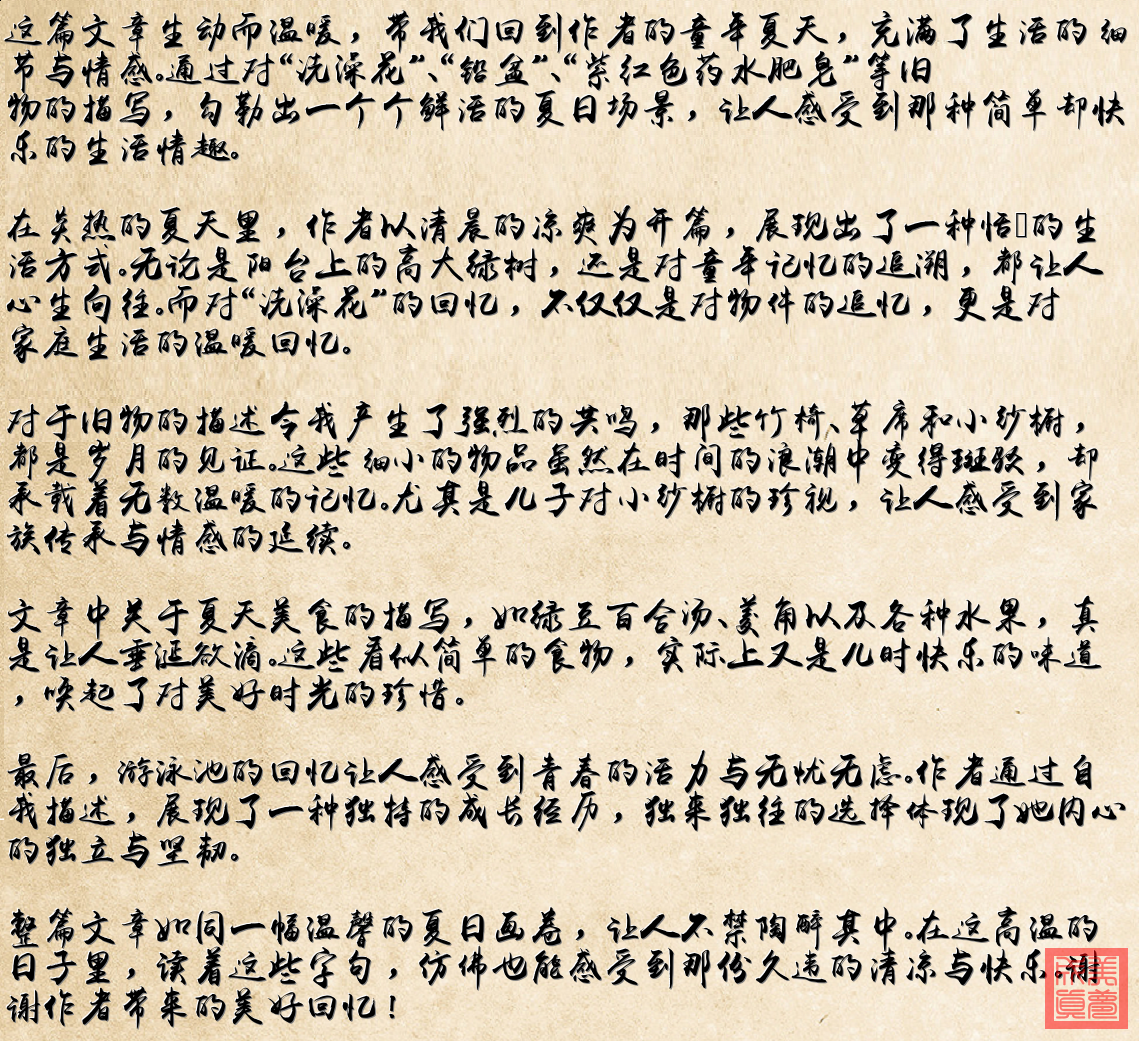 这篇文章生动而温暖，带我们回到作者的童年夏天，充满了生活的细
节与情感。通过对“洗澡花”、“铅盆”、“紫红色药水肥皂”等旧
物的描写，勾勒出一个个鲜活的夏日场景，让人感受到那种简单却快
乐的生活情趣。
在炎热的夏天里，作者以清晨的凉爽为开篇，展现出了一种悟的生
活方式。无论是阳台上的高大绿树，还是对童年记忆的追溯，都让人
心生向往。而对“洗澡花”的回忆，不仅仅是对物件的追忆，更是对
家庭生活的温暖回忆。
对于旧物的描述令我产生了强烈的共鸣，那些竹椅、草席和小纱橱，
都是岁月的见证。这些细小的物品虽然在时间的浪潮中变得斑驳，却
承载着无数温暖的记忆。尤其是儿子对小纱橱的珍视，让人感受到家
族传承与情感的延续。
文章中关于夏天美食的描写，如绿豆百合汤、菱角以及各种水果，真
是让人垂涎欲滴。这些看似简单的食物，实际上又是儿时快乐的味道
，唤起了对美好时光的珍惜。
最后，游泳池的回忆让人感受到青春的活力与无忧无虑。作者通过自
我描述，展现了一种独特的成长经历，独来独往的选择体现了她内心
的独立与坚韧。
整篇文章如同一幅温馨的夏日画卷，让人不禁陶醉其中。在这高温的
日子里，读着这些字句，仿佛也能感受到那份久违的清凉与快乐。谢
谢作者带来的美好回忆！